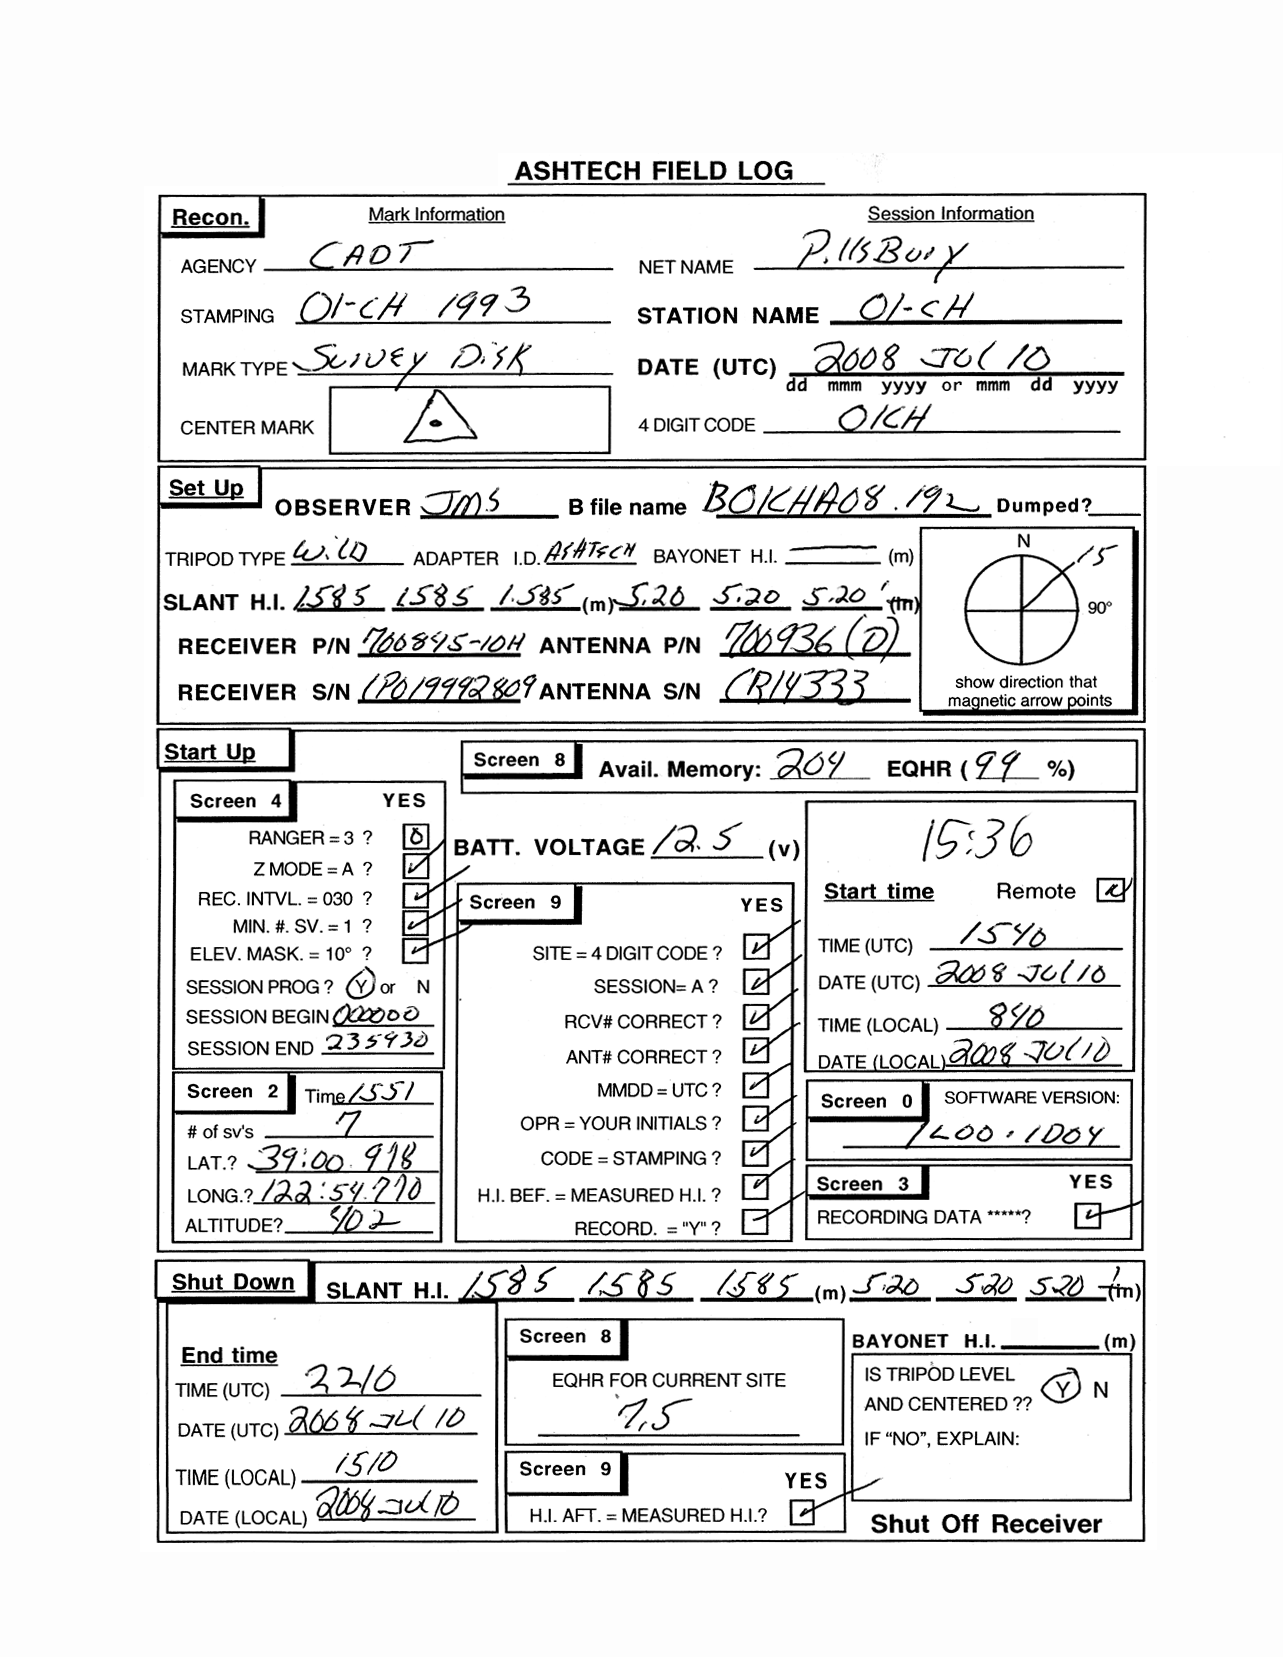 ASHTECH FIELD LOG
Recon. Mark Information Session Information
AGENCY CADT NET NAME PillsBury
STAMPING 01-CH 1993 STATION NAME 01-CH
MARK TYPE Survey Disk DATE (UTC) 2008 Jul 10
dd mmm yyyy or mmm dd yyyy
CENTER MARK 4 DIGIT CODE 01CH
Set Up OBSERVER JMS B file name B01CHA08.192 Dumped?
TRIPOD TYPE Wild ADAPTER I.D. ASHTECH BAYONET H.I. (m) N 15
SLANT H.I. 1.585 1.585 1.585 (m) 5.20 5.20 5.20 ' (in) 90°
RECEIVER P/N 700845-10H ANTENNA P/N 700936 (D)
RECEIVER S/N LP019992809 ANTENNA S/N CR14333 show direction that
magnetic arrow points
Start Up Screen 8 Avail. Memory: 204 EQHR (99 %)
Screen 4 YES
RANGER = 3 ? 0
Z MODE = A ?
REC. INTVL. = 030 ?
MIN. #. SV. = 1 ?
ELEV. MASK. = 10° ?
SESSION PROG ? Y or N
SESSION BEGIN 000000
SESSION END 235930
BATT. VOLTAGE 12.5 (v)
15:36
Start time Remote
TIME (UTC) 1540
DATE (UTC) 2008 Jul 10
TIME (LOCAL) 840
DATE (LOCAL) 2008 Jul 10
Screen 9 YES
SITE = 4 DIGIT CODE ?
SESSION= A ?
RCV# CORRECT ?
ANT# CORRECT ?
MMDD = UTC ?
OPR = YOUR INITIALS ?
CODE = STAMPING ?
H.I. BEF. = MEASURED H.I. ?
RECORD. = "Y" ?
Screen 2 Time 1551
# of sv's 7
LAT.? 39:00.918
LONG.? 122:54.770
ALTITUDE? 402
Screen 0 SOFTWARE VERSION:
1L00.1D04
Screen 3 YES
RECORDING DATA *****?
Shut Down SLANT H.I. 1.585 1.585 1.585 (m) 5.20 5.20 5.20 ' (in)
End time
TIME (UTC) 2210
DATE (UTC) 2008 Jul 10
TIME (LOCAL) 1510
DATE (LOCAL) 2008 Jul 10
Screen 8
EQHR FOR CURRENT SITE
7.5
Screen 9 YES
H.I. AFT. = MEASURED H.I.?
BAYONET H.I. (m)
IS TRIPOD LEVEL
AND CENTERED ?? Y N
IF "NO", EXPLAIN:
Shut Off Receiver